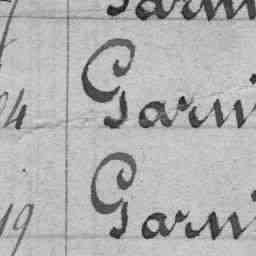 Garni
24 Garni
19 Garni